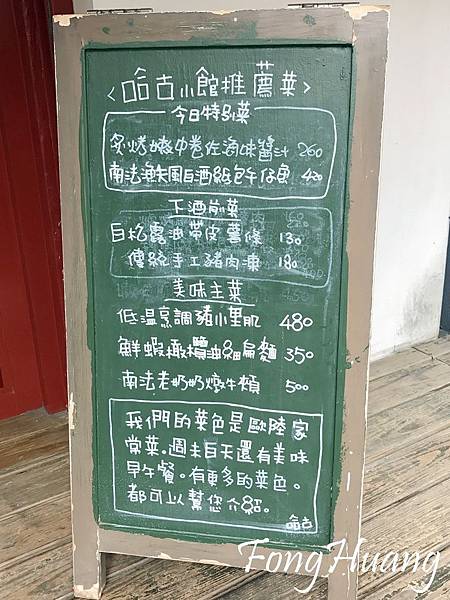 <哈古小館推薦菜>
今日特別菜
炙烤嫩中卷佐滷味醬汁 260
南法漁夫風白酒紙包午仔魚 420
下酒前菜
白松露油帶皮薯條 130
傳統手工豬肉凍 180
美味主菜
低溫烹調豬小里肌 480
鮮蝦橄欖油細扁麵 350
南法老奶奶燉牛頰 500
我們的菜色是歐陸家
常菜。週末白天還有美味
早午餐。有更多的菜色。
都可以幫您介紹。
哈古
FongHuang